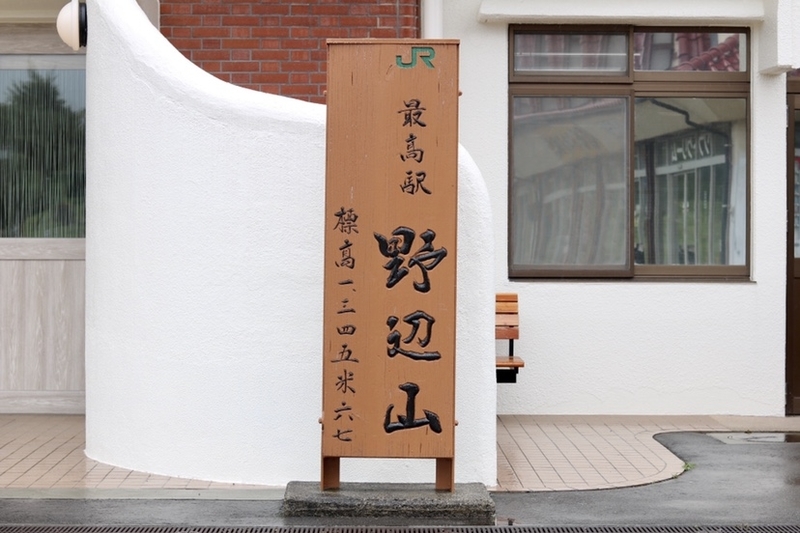 JR
最高駅 野辺山
標高一、三四五米六七